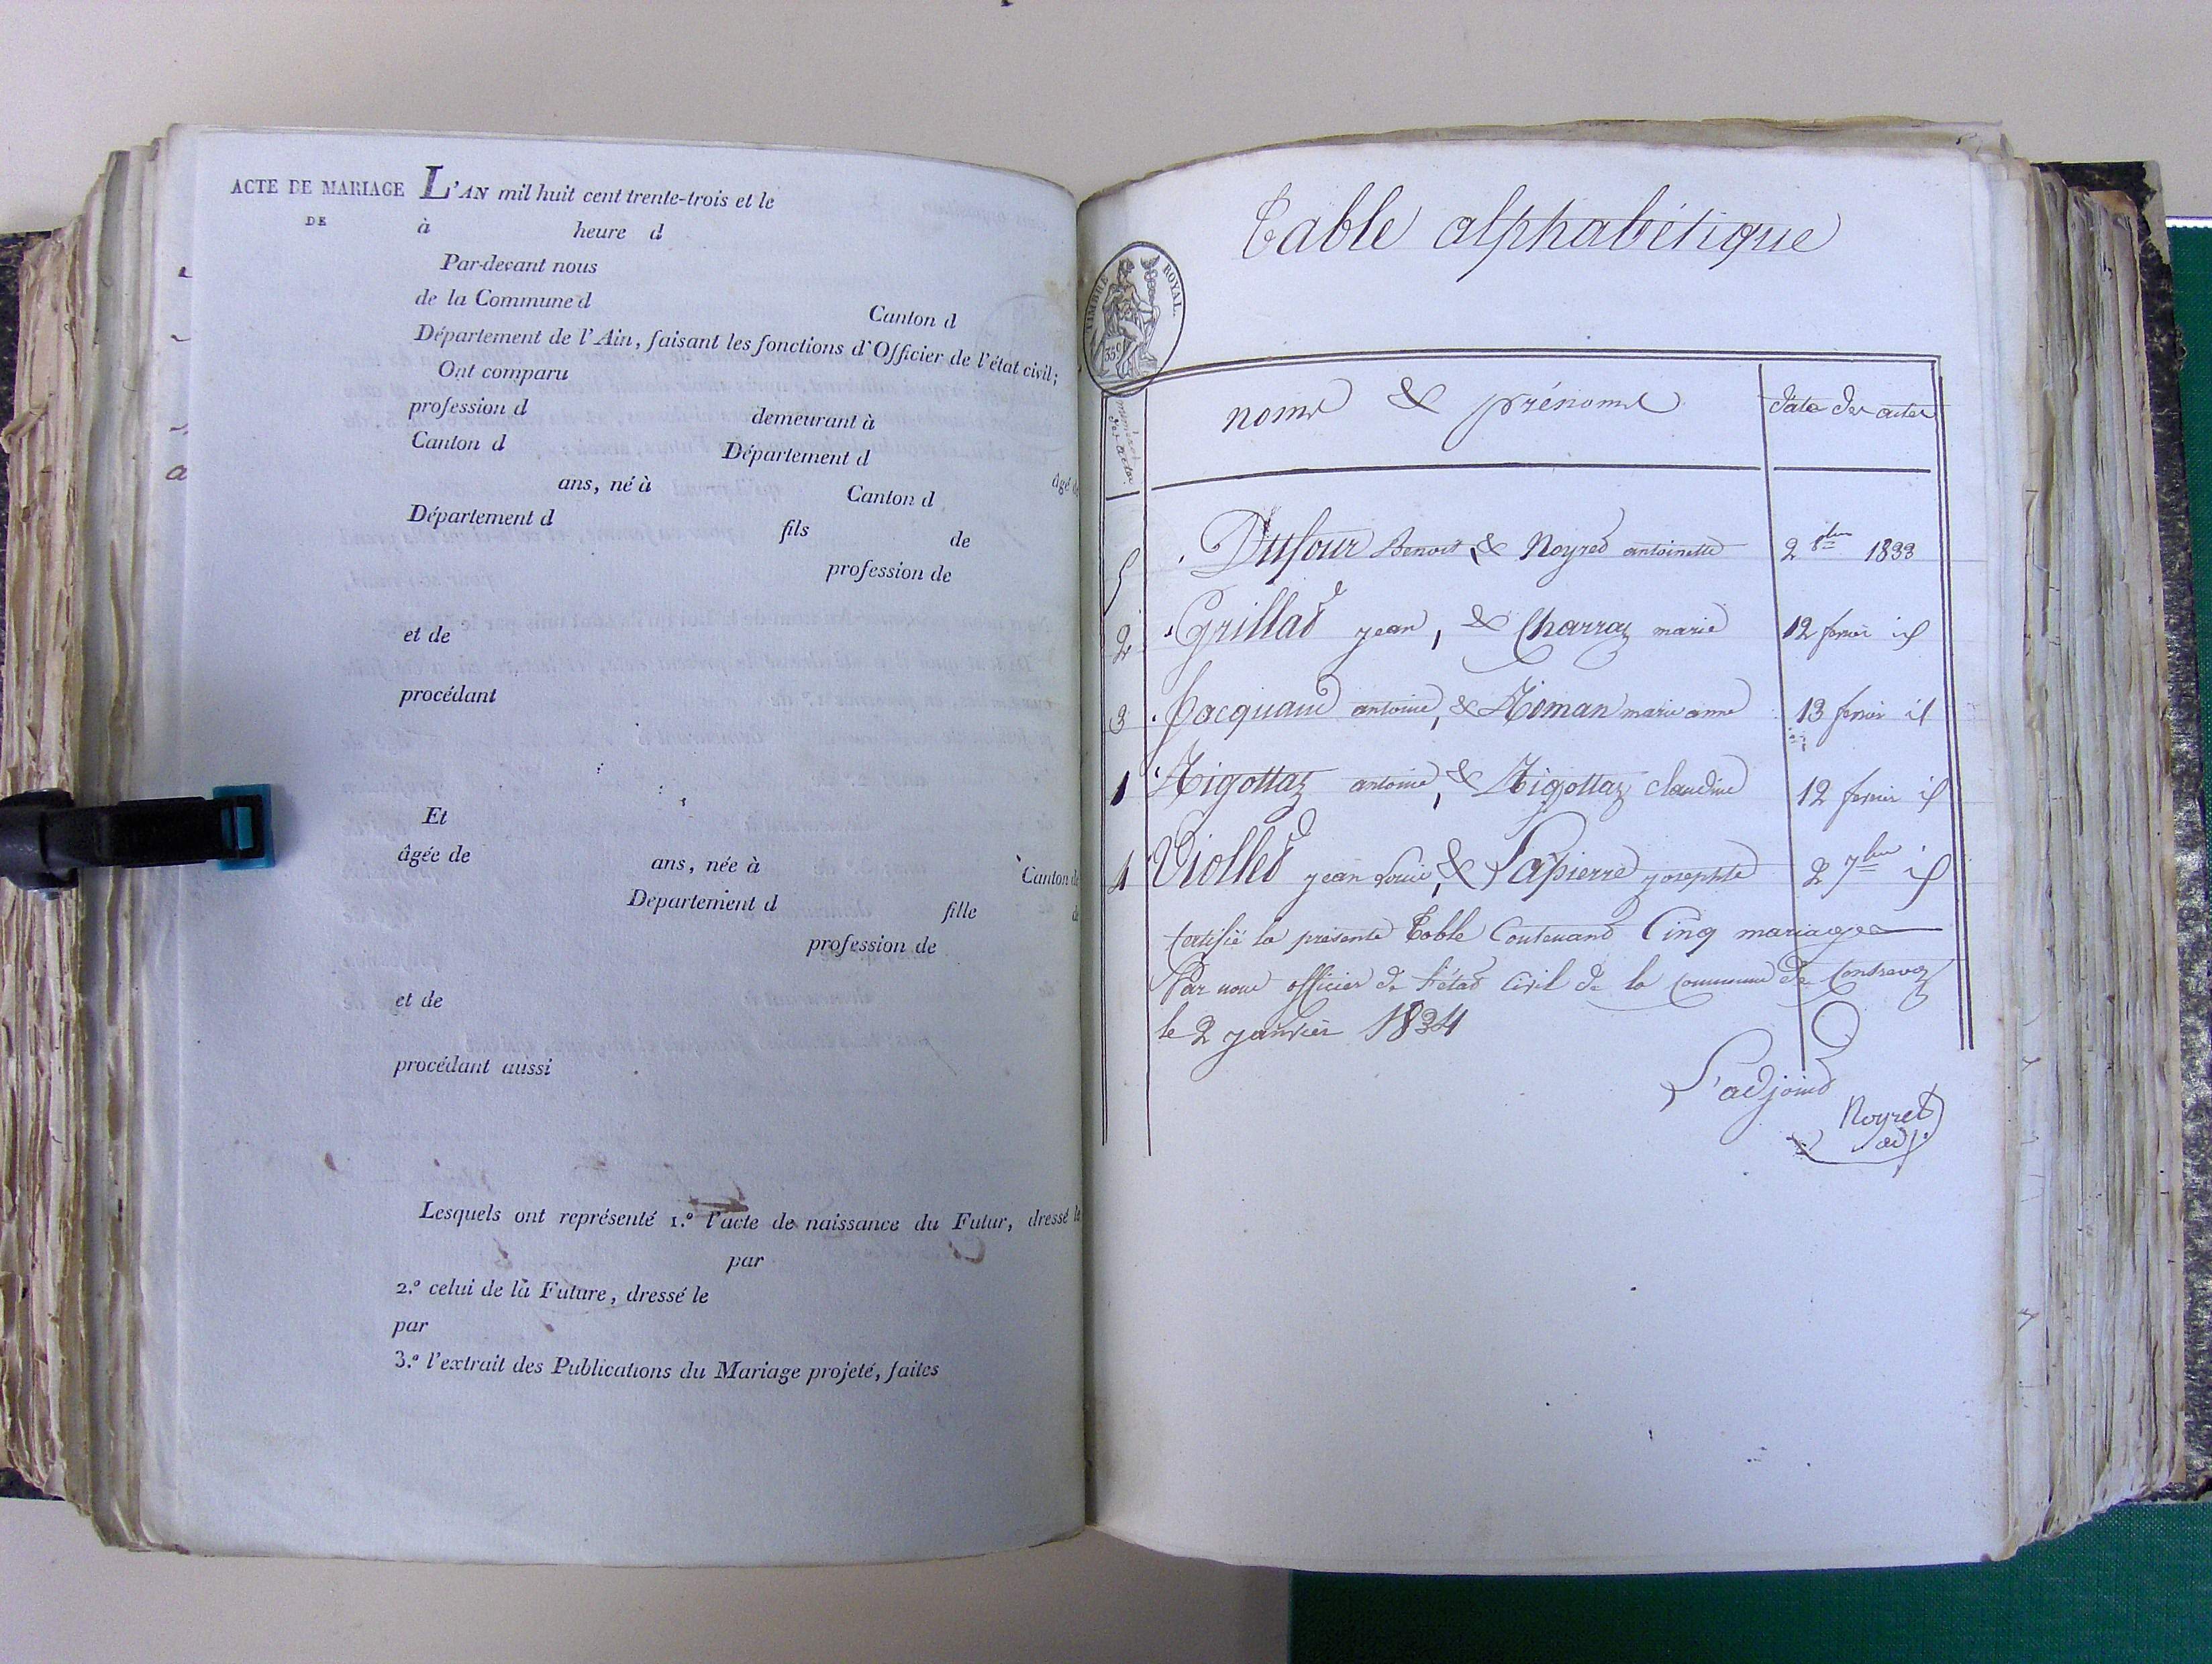 ACTE DE MARIAGE
DE
L'AN mil huit cent trente-trois et le
à heure d
Par-devant nous
de la Commune d Canton d
Département de l'Ain, faisant les fonctions d'Officier de l'état civil;
Ont comparu
profession d demeurant à
Canton d Département d
âgé de
ans, né à Canton d
Département d fils de
profession de
et de
procédant
Et
âgée de ans, née à Canton de
Departement d fille d
profession de
et de
procédant aussi
Lesquels ont représenté 1.º l'acte de naissance du Futur, dressé le
par
2.º celui de la Future, dressé le
par
3.º l'extrait des Publications du Mariage projeté, faites
Table alphabétique
TIMBRE ROYAL
35
numéros des actes
noms & prénoms
date des actes
5 Dufour Benoit, & Noyret antoinette 2 8bre 1833
2 Grillat jean, & Charraz marie 12 fevrier id
3 Jacquand antoine, & Roman marie anne 13 fevrier id
1 Rigottaz antoine, & Rigottaz claudine 12 fevrier id
4 Viollet jean Louis, & Lapierre josephte 2 7bre id
Certifié la présente Table Contenant Cinq mariages
Par nous officier de l'état Civil de la commune de Contrevoz
le 2 janvier 1834
L'adjoint
Noyret
adj.